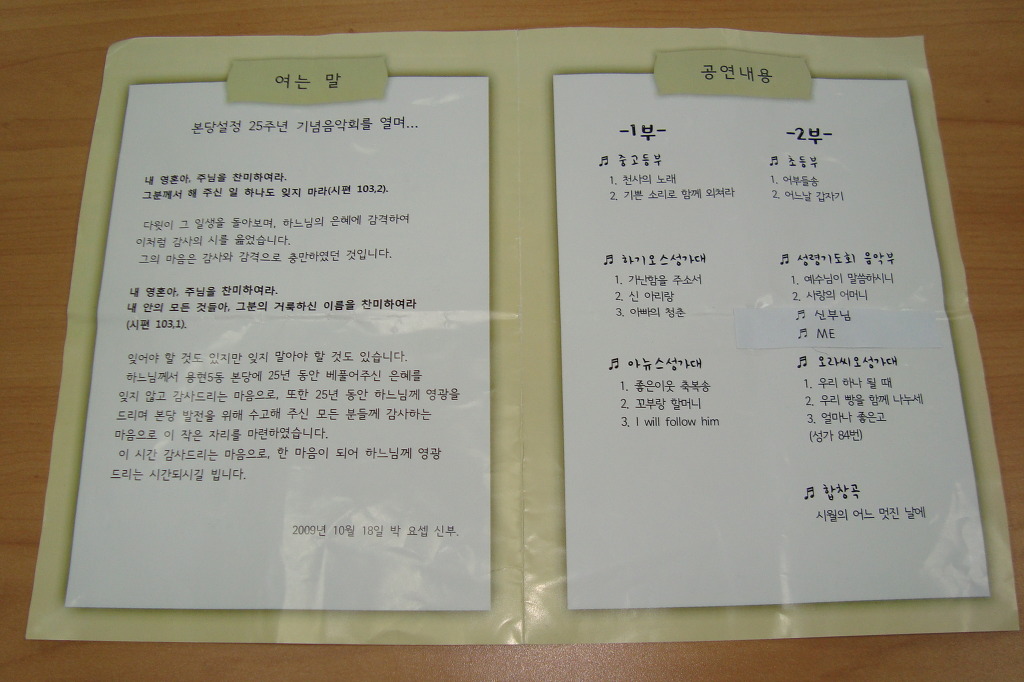 여는 말
본당설정 25주년 기념음악회를 열며...
내 영혼아, 주님을 찬미하여라.
그분께서 해 주신 일 하나도 잊지 마라(시편 103,2).
다윗이 그 일생을 돌아보며, 하느님의 은혜에 감격하여
이처럼 감사의 시를 읊었습니다.
그의 마음은 감사와 감격으로 충만하였던 것입니다.
내 영혼아, 주님을 찬미하여라.
내 안의 모든 것들아, 그분의 거룩하신 이름을 찬미하여라
(시편 103,1).
잊어야 할 것도 있지만 잊지 말아야 할 것도 있습니다.
하느님께서 용현5동 본당에 25년 동안 베풀어주신 은혜를
잊지 않고 감사드리는 마음으로, 또한 25년 동안 하느님께 영광을
드리며 본당 발전을 위해 수고해 주신 모든 분들께 감사하는
마음으로 이 작은 자리를 마련하였습니다.
이 시간 감사드리는 마음으로, 한 마음이 되어 하느님께 영광
드리는 시간되시길 빕니다.
2009년 10월 18일 박 요셉 신부.
공연내용
-1부-
♬ 중고등부
1. 천사의 노래
2. 기쁜 소리로 함께 외쳐라
♬ 하기오스성가대
1. 가난함을 주소서
2. 신 아리랑
3. 아빠의 청춘
♬ 아뉴스성가대
1. 좋은이웃 축복송
2. 꼬부랑 할머니
3. I will follow him
-2부-
♬ 초등부
1. 어부들송
2. 어느날 갑자기
♬ 성령기도회 음악부
1. 예수님이 말씀하시니
2. 사랑의 어머니
♬ 신부님
♬ ME
♬ 오라씨오성가대
1. 우리 하나 될 때
2. 우리 빵을 함께 나누세
3. 얼마나 좋은고
(성가 84번)
♬ 합창곡
시월의 어느 멋진 날에